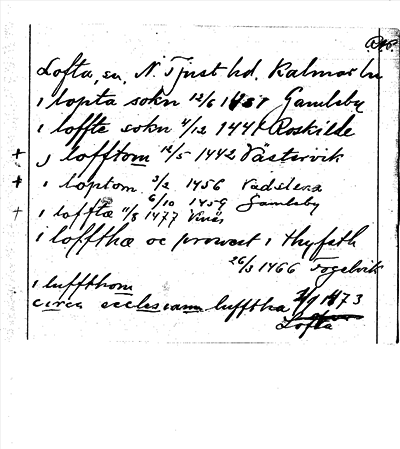 Lofta, sn, N. Tjust hd. Kalmar ln
i lopta sokn 12/6 1437 Gamleby
i loffte sokn 4/12 1441 Roskilde
+ j lofftom 12/5 1442 Västervik
+ i loptom 3/2 1456 Vadstena
6/10 1459 Gamleby
+ i lofftæ 11/8 1477 Vinäs
i lofftha oc prowast i thyfsth
26/3 1466 Fogelvik
i luffthom
circa ecclesiam lufftha 1473
Lofta